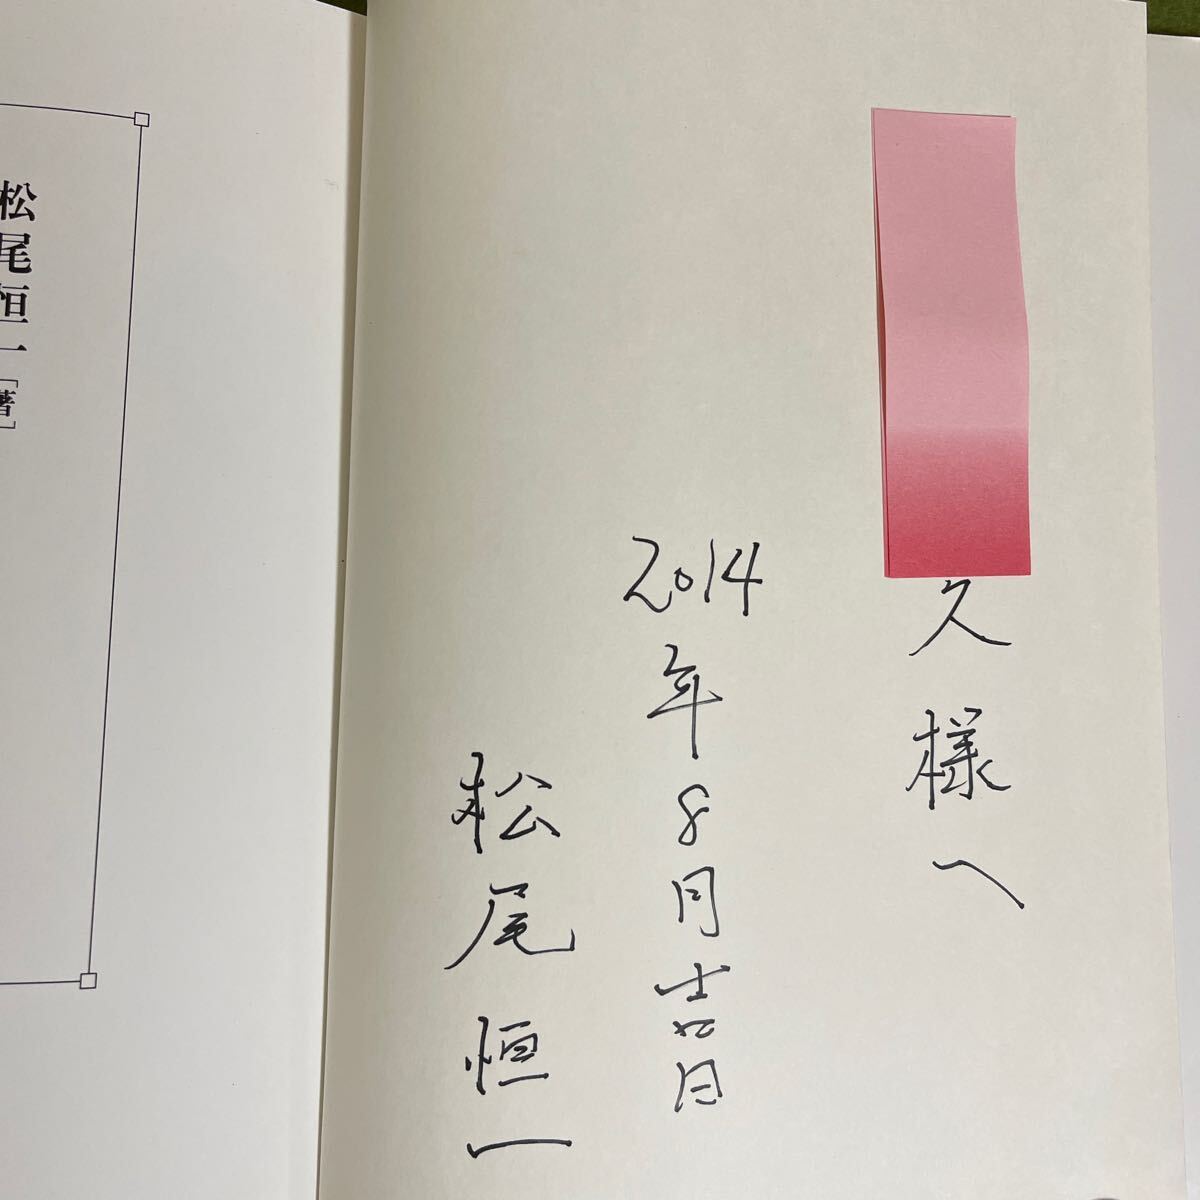 久様へ
2014年8月吉日
松尾恒一
松尾恒一[著]